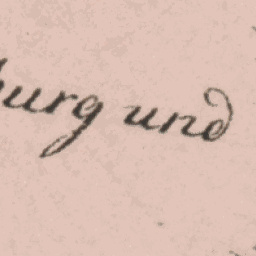 burg und